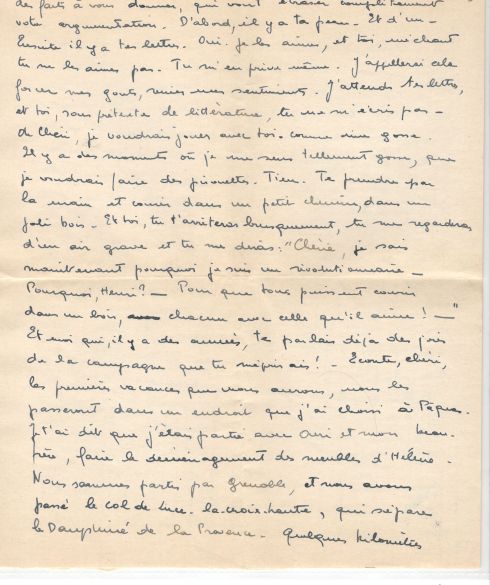 des faits à vous donner, qui vont écraser complètement
votre argumentation. D'abord, il y a ta peau. Et d'un –
Ensuite il y a tes lettres. Oui. je les aime, et toi, méchant
tu ne les aimes pas. Tu m'en prives même. J'appellerai cela
forcer mes gouts, mes sentiments. J'attends tes lettres,
et toi, sous prétexte de littérature, tu ne m'écris pas –
Oh Chéri, je voudrais jouer avec toi. comme une gosse.
Il y a des moments où je me sens tellement gosse, que
je voudrais faire des pirouettes. Tiens. Te prendre par
la main et courir dans un petit chemin, dans un
joli bois – Et toi, tu t'arrêteras brusquement, tu me regarderas
d'un air grave et tu me diras: "Chérie, je sais
maintenant pourquoi je suis un révolutionnaire –
Pourquoi, Henri? – Pour que tous puissent courir
dans un bois, chacun avec celle qu'il aime! –"
Et moi qui, il y a des années, te parlais déjà des joies
de la campagne que tu méprisais! – Ecoute, chéri,
les premières vacances que nous aurons, nous les
passerons dans un endroit que j'ai choisi à Pâques.
Je t'ai dit que j'étais partie avec et mon beau-
frère, faire le déménagement des meubles d'Hélène –
Nous sommes partis par Grenoble, et nous avons
passé le col de Luce-la-croix-haute, qui sépare
le Dauphiné de la Provence – quelques kilomètres